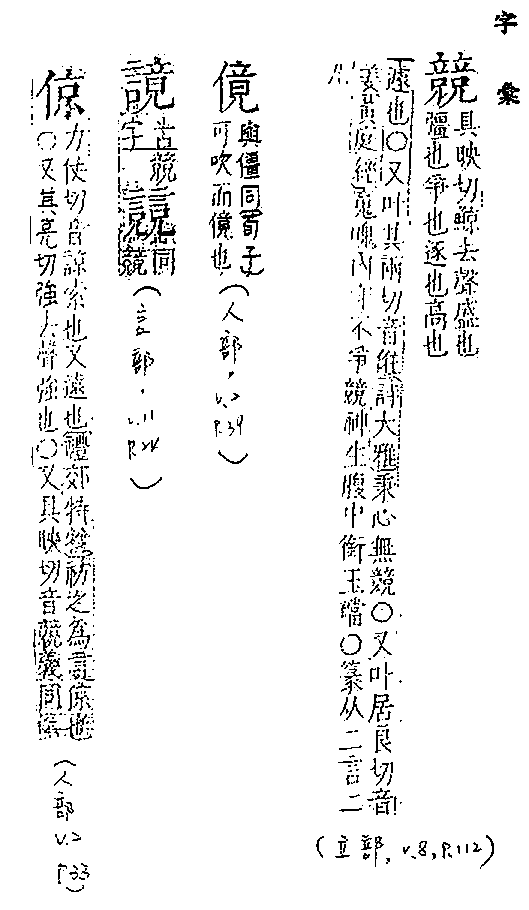 字彙
競 具映切鯨去聲盛也
彊也爭也逐也高也
遽也○又叶其兩切音繼詩大雅秉心無競○又叶居良切音
姜黃庭經魂魄內守不爭競神生腹中銜玉璫○篆从二言二
人
(立部, v.8, P.112)
傹 與僵同荀子
可吹而傹也
(人部, v.2 P.39)
誩 古競
字
競同
競
(言部, v.11 P.24)
倞 力仗切音諒索也又遠也禮郊特牲祊之為言倞也
○又其亮切強去聲強也○又具映切音競義同
(人部 v.2 P.33)